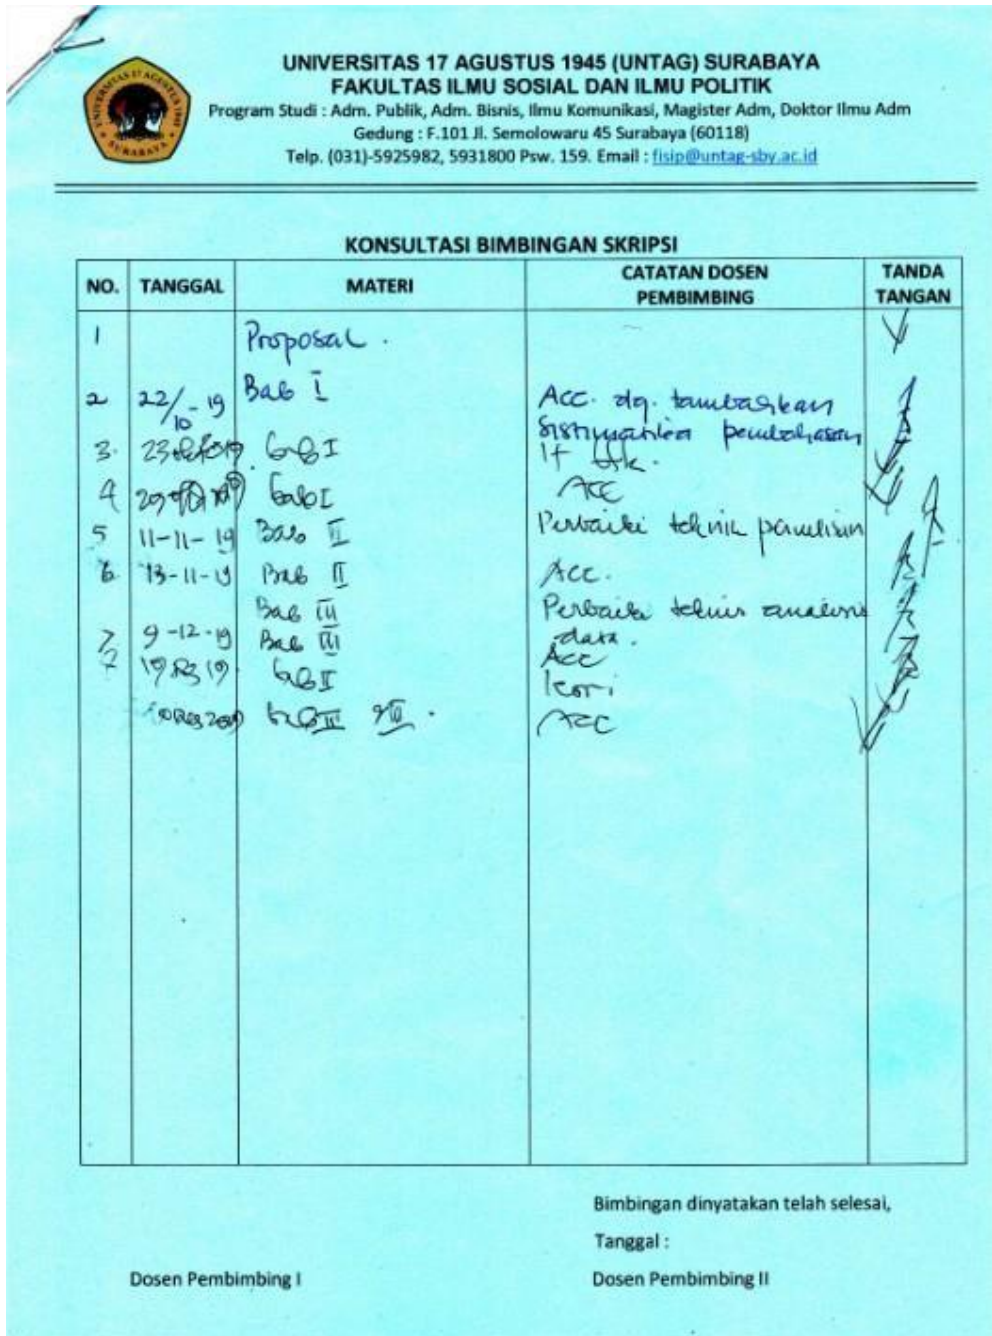 UNIVERSITAS 17 AGUSTUS 1945 (UNTAG) SURABAYA
FAKULTAS ILMU SOSIAL DAN ILMU POLITIK
Program Studi : Adm. Publik, Adm. Bisnis, Ilmu Komunikasi, Magister Adm, Doktor Ilmu Adm
Gedung : F.101 Jl. Semolowaru 45 Surabaya (60118)
Telp. (031)-5925982, 5931800 Psw. 159. Email : fisip@untag-sby.ac.id
UNIVERSITAS 17 AGUSTUS 1945
SURABAYA
KONSULTASI BIMBINGAN SKRIPSI
NO. TANGGAL MATERI CATATAN DOSEN PEMBIMBING TANDA TANGAN
1 Proposal.
2 22/10-19 Bab I Acc. dg. tambahkan
sistimatika pembahasan
3. 23 2019 bab I
4 29 bab I ACC
5 11-11-19 Bab II Perbaiki teknik penulisan
6. 13-11-19 Bab II Acc.
Bab III Perbaiki teknis analisis
data.
7 9-12-19 Bab III Acc
19 19 bab II teori
bab II III. ACC
Bimbingan dinyatakan telah selesai,
Tanggal :
Dosen Pembimbing I Dosen Pembimbing II